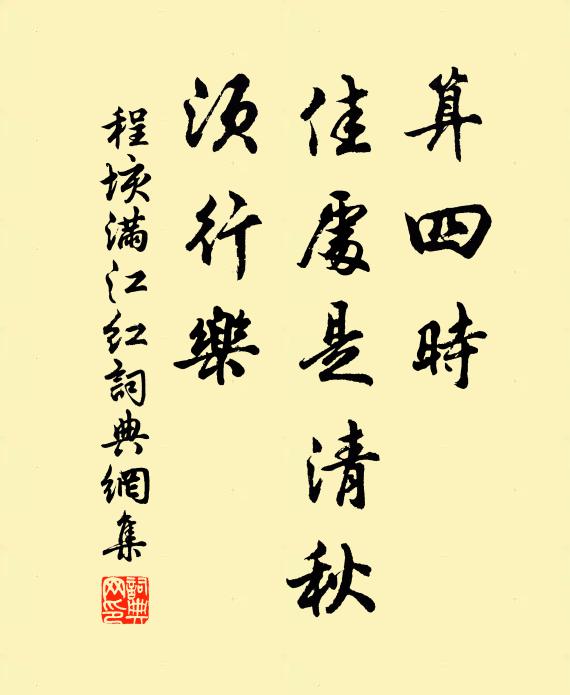 算四時
佳處是清秋
須行樂
程垓滿江紅詞典網集
詞典網印